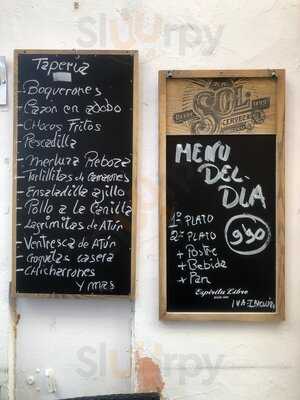 Sluurpy
Taperia
- Boquerones
- Cazon en adobo
- Chocos Fritos
- Pescadilla
- Merluza Reboza
- Tortillitas de Camarones
- Ensaladilla ajillo
- Pollo a la Canilla
- Lagrimitas de ATún
- Ventresca de ATún
- Croqueta casera
- Chicharrones
y mas
SOL
DESDE 1899
CERVEZA
MENU
DEL-
DIA
1º PLATO
2º PLATO
+ Postre
+ Bebida
+ Pan
9'90
Espíritu Libre
DESDE 1899
IVA-INCLUIDO
Sluurpy
Sluurpy